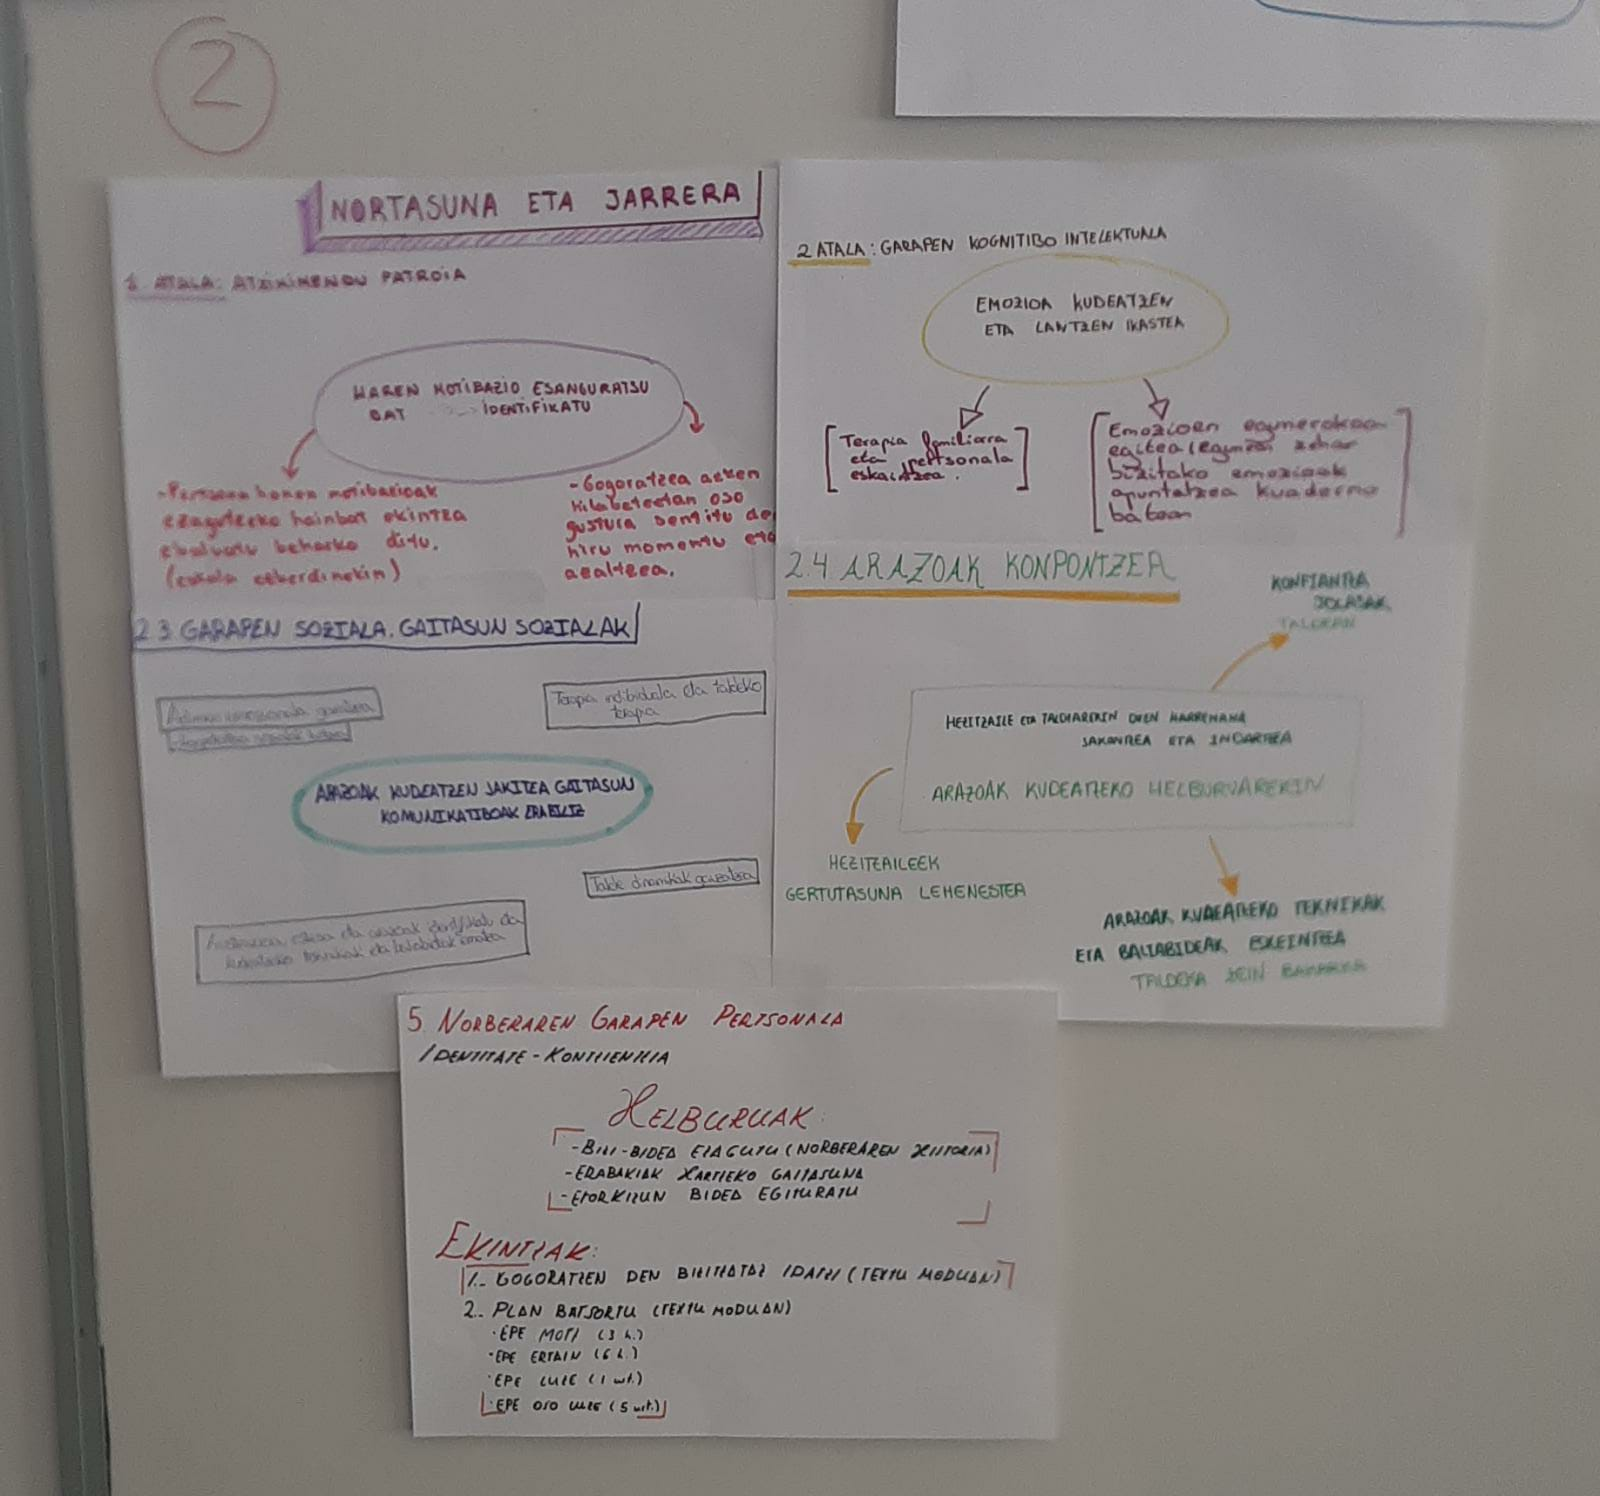 2
NORTASUNA ETA JARRERA
1. ATALA: ATXIKIMENDU PATROIA
HAREN MOTIBAZIO ESANGURATSU
BAT IDENTIFIKATU
-Pertsona honen motibazioak
ezagutzeko hainbat ekintza
ebaluatu beharko ditu.
(eskala ezberdinekin)
-Gogoratzea azken
hilabeteetan oso
gustura sentitu de
hiru momentu eta
azaltzea.
2 ATALA: GARAPEN KOGNITIBO INTELEKTUALA
EMOZIOA KUDEATZEN
ETA LANTZEN IKASTEA
Terapia familiarra
eta pertsonala
eskaintzea.
Emozioen egunerokoa
egitea (egunean zehar
bizitako emozioak
apuntatzea kuaderno
batean
2.3 GARAPEN SOZIALA. GAITASUN SOZIALAK
Terapia indibiduala eta taldeko
terapia
ARAZOAK KUDEATZEN JAKITEA GAITASUN
KOMUNIKATIBOAK ERABILIZ
Talde dinamikak garatzea
eta arazoak identifikatu eta
teknikak eta baliabideak ematea
2.4. ARAZOAK KONPONTZEA
KONFIANTZA
JOLASAK
TALDEAN
HEZITZAILE ETA TALDEAREKIN DUEN HARREMANA
SAKONTZEA ETA INDARTZEA
ARAZOAK KUDEATZEKO HELBURUAREKIN
HEZITZAILEEK
GERTUTASUNA LEHENESTEA
ARAZOAK KUDEATZEKO TEKNIKAK
ETA BALIABIDEAK ESKEINTZEA
TALDEKA ZEIN BAKARKA
5. NORBERAREN GARAPEN PERTSONALA
IDENTITATE-KONTZIENTZIA
HELBURUAK:
-BIZI-BIDEA EZAGUTU (NORBERAREN HISTORIA)
-ERABAKIAK HARTZEKO GAITASUNA
-ETORKIZUN BIDEA EGITURATU
EKINTZAK:
1.. GOGORATZEN DEN BIZITZATAZ IDATZI (TEXTU MODUAN)
2.. PLAN BAT SORTU (TEXTU MODUAN)
·EPE MOTZ (3 h.)
·EPE ERTAIN (6 h.)
·EPE LUZE (1 urt.)
·EPE OSO LUZE (5 urt.)